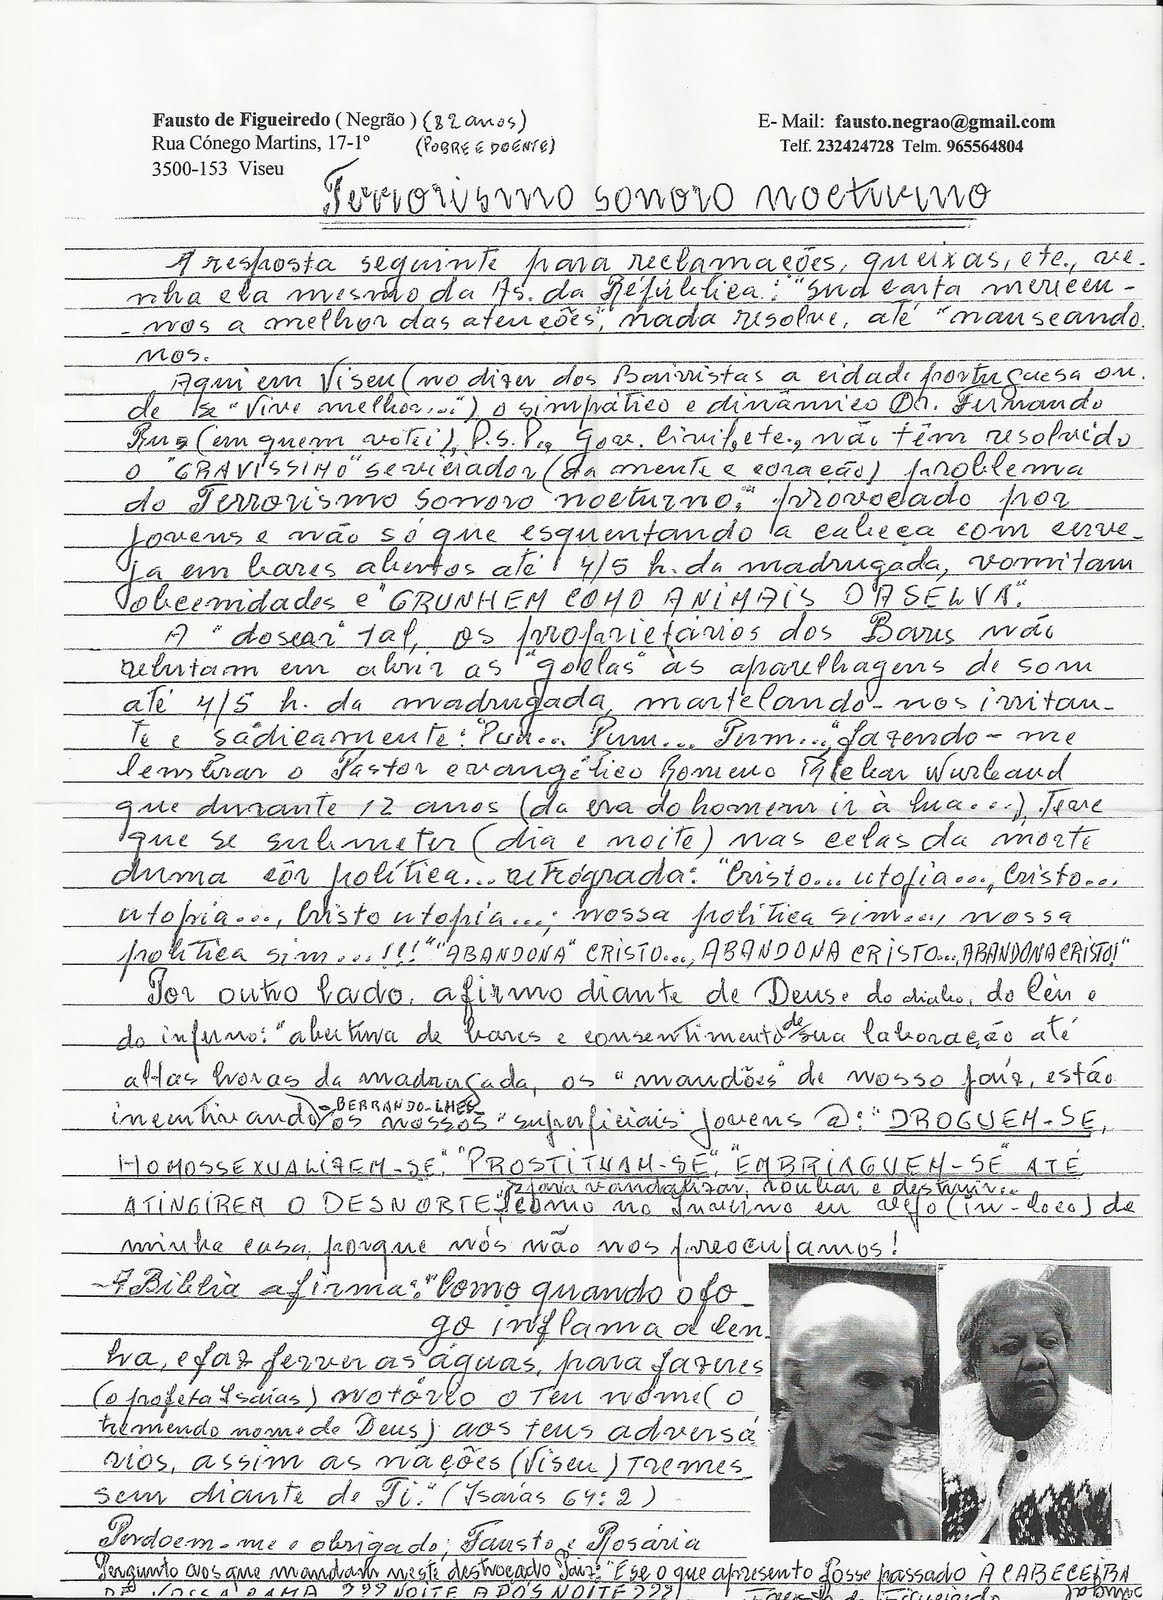 Fausto de Figueiredo ( Negrão ) (82 anos)
Rua Cónego Martins, 17-1º (POBRE E DOENTE)
3500-153 Viseu
E- Mail: fausto.negrao@gmail.com
Telf. 232424728 Telm. 965564804
Terrorismo sonoro nocturno
A resposta seguinte para reclamações, queixas, etc., ve-
nha ela mesmo da As. da República: "sua carta mereceu-
-nos a melhor das atenções", nada resolve, até "nauseando
nos.
Aqui em Viseu (no dizer dos Bairristas a cidade portuguesa on-
de se "vive melhor...") o simpático e dinâmico Dr. Fernando
Ruas (em quem votei), P.S.P., Gov. Civil, etc., não têm resolvido
o "GRAVÍSSIMO" seviciador (da mente e coração) problema
do Terrorismo sonoro nocturno," provocado por
jovens e não só que esquentando a cabeça com cerve-
ja em bares abertos até 4/5 h. da madrugada, vomitam
obcenidades e "GRUNHEM COMO ANIMAIS DA SELVA".
A "dosear" tal, os proprietários dos Bares não
relutam em abrir as "goelas" às aparelhagens de som
até 4/5 h. da madrugada, martelando-nos irritan-
te e sádicamente: "Pum... Pum... Pum...", fazendo-me
lembrar o Pastor evangélico Romeno
que durante 12 anos (da era do homem ir à lua...) Teve
que se submeter (dia e noite) nas celas da morte
duma côr política... retrógrada: "Cristo... utopia..., Cristo...
utopia..., Cristo utopia...; nossa política sim..., nossa
política sim...!!!" "ABANDONA" CRISTO..., ABANDONA CRISTO..., ABANDONA CRISTO!"
Por outro lado, afirmo diante de Deus e do diabo, do Céu e
do inferno: "abertura de bares e consentimento de sua laboração até
altas horas da madrugada, os "mandões" de nosso país, estão
incentivando -BERRANDO-LHES- os nossos "superficiais" jovens a: "DROGUEM-SE,
HOMOSSEXUALIZEM-SE", "PROSTITUAM-SE", "EMBRIAGUEM-SE" ATÉ
ATINGIREM O DESNORTE para vandalizar, roubar e destruir... como no Inverno eu vejo (in-loco) de
minha casa, porque nós não nos preocupamos!
- A Bíblia afirma: "Como quando o fo-
go inflama a len-
ha, e faz ferver as águas, para fazeres
(o profeta Isaías) notório o Teu nome (o
tremendo nome de Deus) aos teus adversá
rios, assim as nações (Viseu) tremes
sem diante de Ti." (Isaías 64:2)
Perdoem-me e obrigado; Fausto e Rosária
Pergunto aos que mandam neste destroçado País: "E se o que apresento fosse passado À CABECEIRA
DE VOSSA CAMA ??? NOITE APÓS NOITE ???!